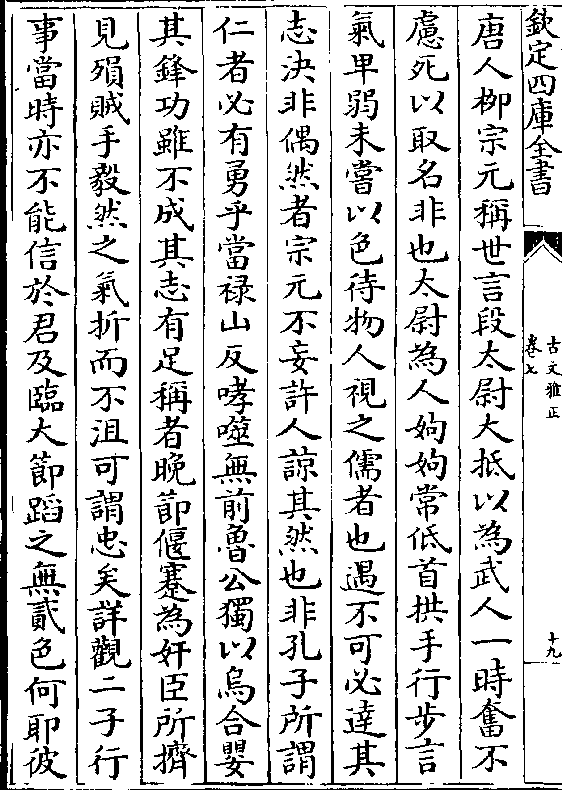 欽定四庫全書
古文雅正
卷七
十九
唐人柳宗元稱世言段太尉大抵以為武人一時奮不
慮死以取名非也太尉為人姁姁常低首拱手行步言
氣卑弱未嘗以色待物人視之儒者也遇不可必達其
志決非偶然者宗元不妄許人諒其然也非孔子所謂
仁者必有勇乎當祿山反哮噬無前魯公獨以烏合嬰
其鋒功雖不成其志有足稱者晚節偃蹇為奸臣所擠
見殞賊手毅然之氣折而不沮可謂忠矣詳觀二子行
事當時亦不能信於君及臨大節蹈之無貳色何耶彼